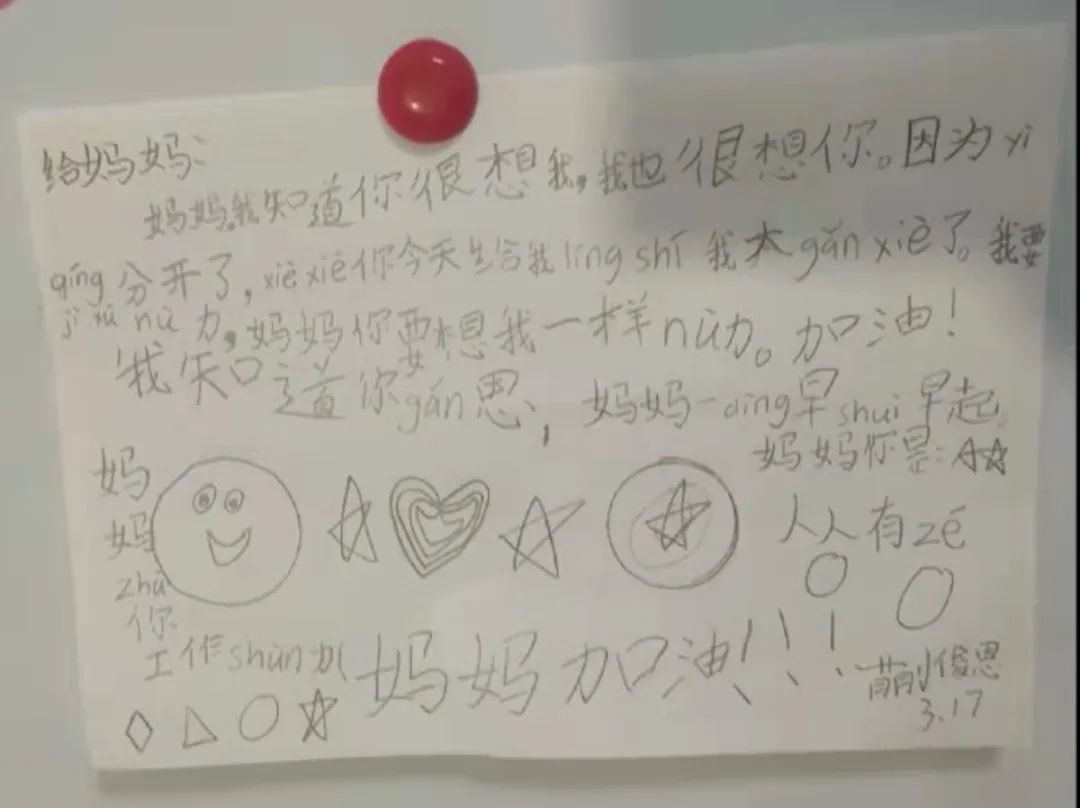 给妈妈:
妈妈,我知道你很想我,我也很想你。因为yì
qíng分开了,xiè xiè你今天给我líng shí 我太gǎn xiè了。我要
jì xù nǔ力,妈妈你要想我一样nǔ力。加油!
我知道你gǎn恩,妈妈一dìng早shuì早起。
妈妈你是:☆☆
妈
妈
zhù
你
工作shùn利
人人有zé
妈妈加油!!!
俊恩
3.17